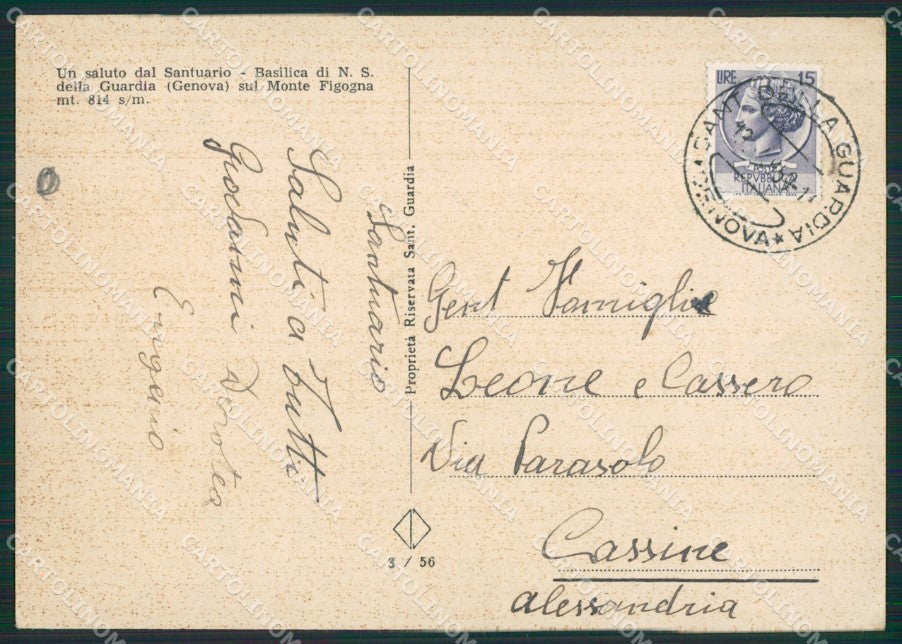 Un saluto dal Santuario - Basilica di N. S.
della Guardia (Genova) sul Monte Figogna
mt. 814 s/m.
Santuario
Saluti a tutti
Giovanni Dorotea
Eugenio
Proprietà Riservata Sant. Guardia
3 / 56
LIRE 15
REPVBBLICA
ITALIANA
SANT. DELLA GUARDIA
★ GENOVA ★
Gent Famiglie
Leone e Cassero
Via Parasolo
Cassine
Alessandria
CARTOLINOMANIA